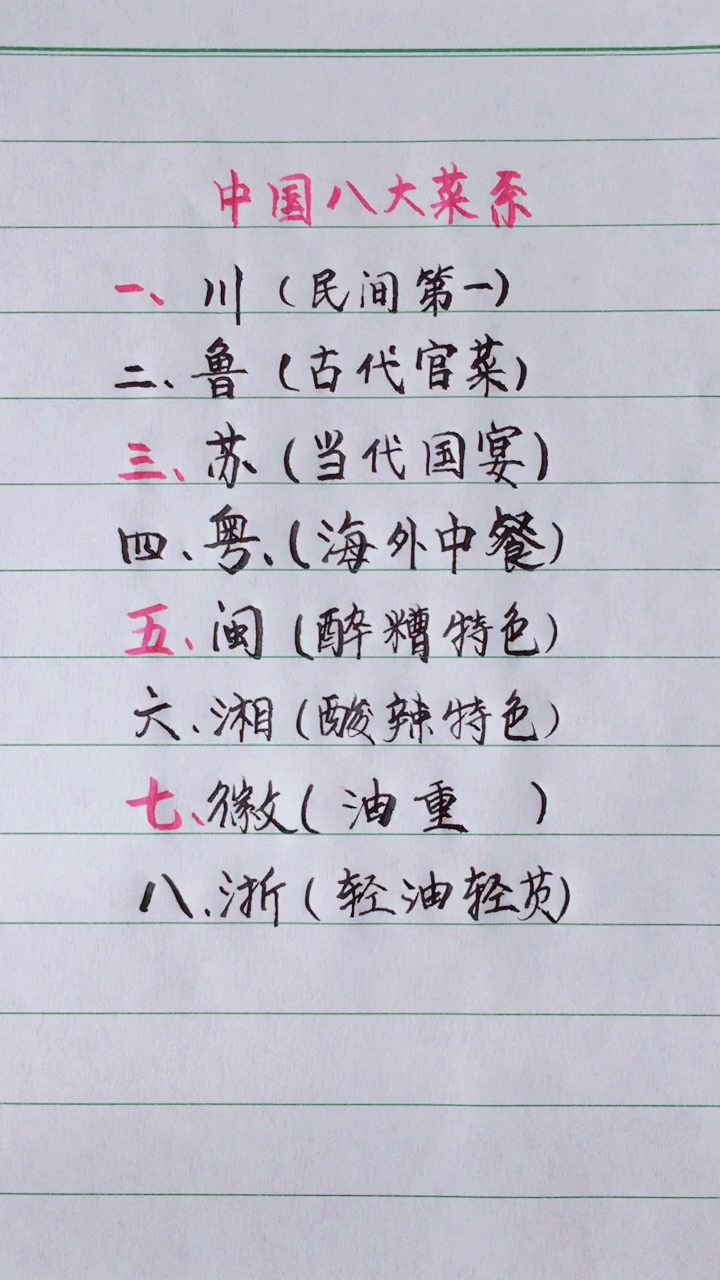 中国八大菜系
一、川（民间第一）
二、鲁（古代官菜）
三、苏（当代国宴）
四、粤、（海外中餐）
五、闽（醉糟特色）
六、湘（酸辣特色）
七、徽（油重　）
八、浙（轻油轻芡）